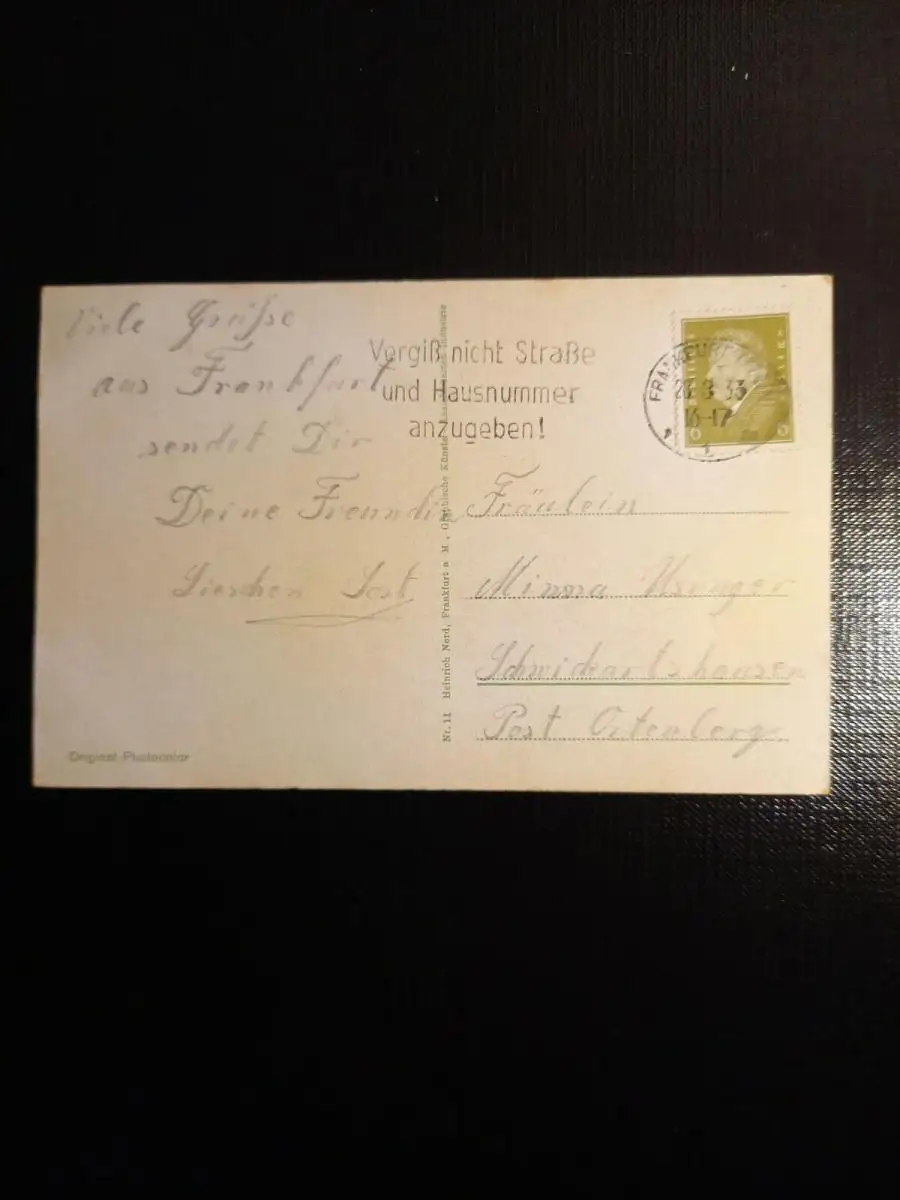 Viele Grüße
aus Frankfurt
sendet Dir
Deine Freundin
Lieschen
Vergiß nicht Straße
und Hausnummer
anzugeben!
FRANKFURT
33
16-17
1
6 6
Fräulein
Minna
Schwickartshausen
Post Ortenberg
Nr. 11 Heinrich Nord, Frankfurt a M., Graphische
Original Photocolor